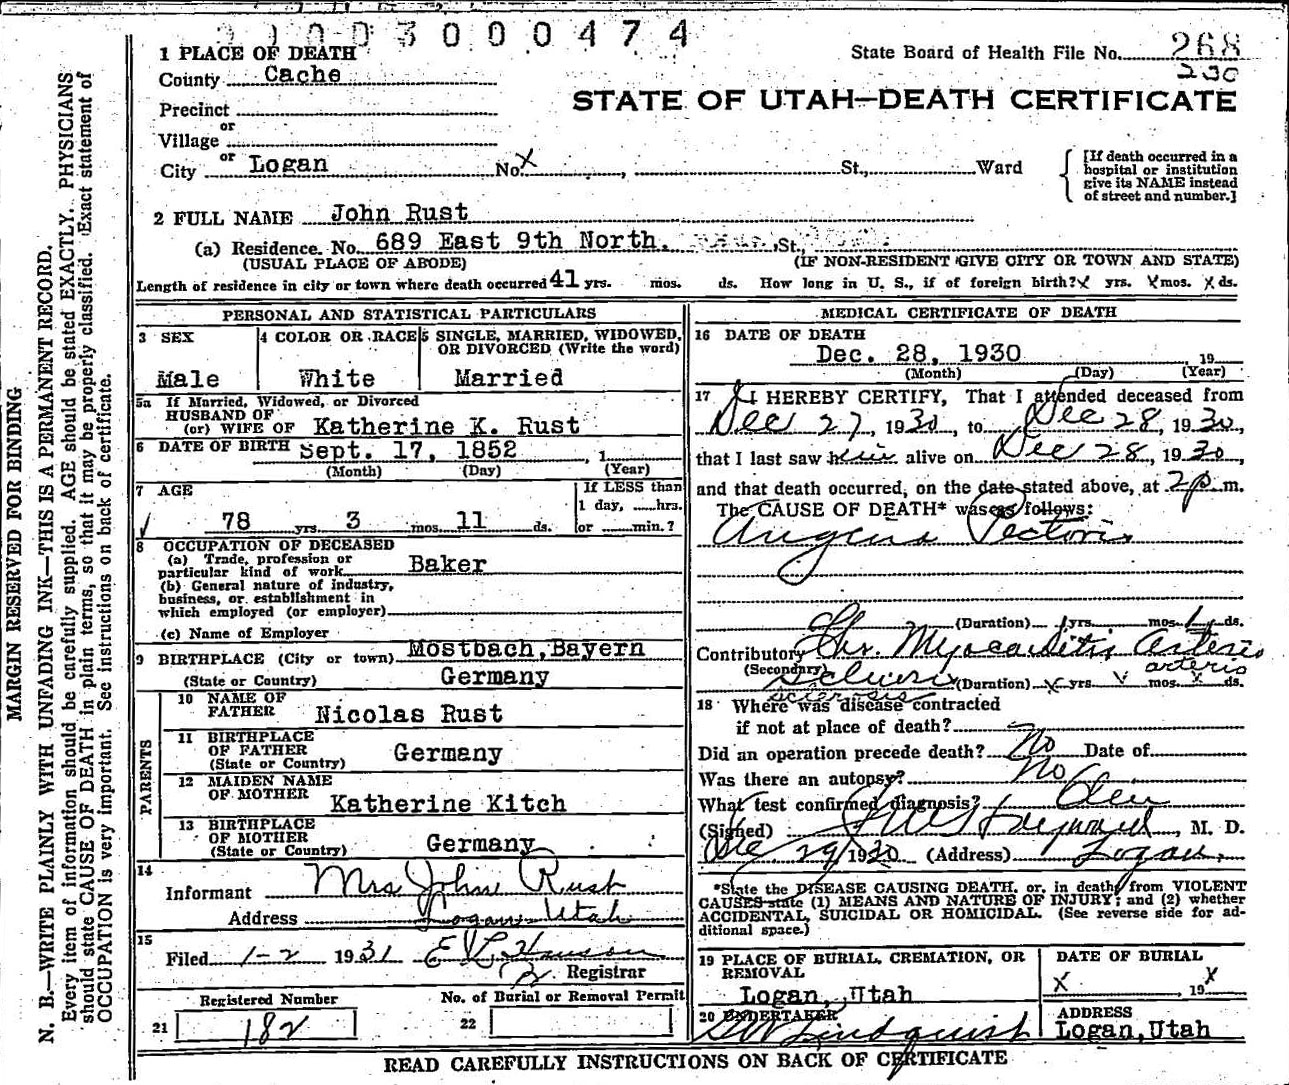 3000474
1 PLACE OF DEATH
State Board of Health File No. 268
230
County Cache
STATE OF UTAH—DEATH CERTIFICATE
Precinct
or
Village
or
City Logan No. X St., Ward
[If death occurred in a hospital or institution give its NAME instead of street and number.]
2 FULL NAME John Rust
(a) Residence. No. 689 East 9th North. St.,
(USUAL PLACE OF ABODE) (IF NON-RESIDENT GIVE CITY OR TOWN AND STATE)
Length of residence in city or town where death occurred 41 yrs. mos. ds. How long in U. S., if of foreign birth? X yrs. X mos. X ds.
PERSONAL AND STATISTICAL PARTICULARS
3 SEX
Male
4 COLOR OR RACE
White
5 SINGLE, MARRIED, WIDOWED,
OR DIVORCED (Write the word)
Married
5a If Married, Widowed, or Divorced
HUSBAND OF
(or) WIFE OF Katherine K. Rust
6 DATE OF BIRTH Sept. 17, 1852 , 1
(Month) (Day) (Year)
7 AGE
78 yrs. 3 mos. 11 ds.
If LESS than
1 day, hrs.
or min.?
8 OCCUPATION OF DECEASED
(a) Trade, profession or
particular kind of work Baker
(b) General nature of industry,
business, or establishment in
which employed (or employer)
(c) Name of Employer
9 BIRTHPLACE (City or town) Mostbach, Bayern
(State or Country) Germany
PARENTS
10 NAME OF
FATHER Nicolas Rust
11 BIRTHPLACE
OF FATHER
(State or Country) Germany
12 MAIDEN NAME
OF MOTHER Katherine Kitch
13 BIRTHPLACE
OF MOTHER
(State or Country) Germany
14
Informant Mrs John Rust
Address Logan Utah
15
Filed 1-2 1931 E L Hanson
Registrar
Registered Number
21 182
No. of Burial or Removal Permit
22
MEDICAL CERTIFICATE OF DEATH
16 DATE OF DEATH
Dec. 28, 1930 19
(Month) (Day) (Year)
17 I HEREBY CERTIFY, That I attended deceased from
Dec 27, 1930, to Dec 28, 1930,
that I last saw him alive on Dec 28, 1930,
and that death occurred, on the date stated above, at 2 p. m.
The CAUSE OF DEATH* was as follows:
Angina Pectoris
(Duration) yrs. mos. 1 ds.
Contributory Chr. Myocarditis Arterio
(Secondary) Sclerosis arterio
sclerosis (Duration) yrs. mos. ds.
18 Where was disease contracted
if not at place of death?
Did an operation precede death? No Date of
Was there an autopsy? No
What test confirmed diagnosis? Clin
(Signed) Hayward, M. D.
Dec 29, 1930 (Address) Logan,
*State the DISEASE CAUSING DEATH, or, in death from VIOLENT
CAUSES state (1) MEANS AND NATURE OF INJURY; and (2) whether
ACCIDENTAL, SUICIDAL OR HOMICIDAL. (See reverse side for ad-
ditional space.)
19 PLACE OF BURIAL, CREMATION, OR
REMOVAL
Logan, Utah
DATE OF BURIAL
X 19X
20 UNDERTAKER
Lindquist
ADDRESS
Logan, Utah
READ CAREFULLY INSTRUCTIONS ON BACK OF CERTIFICATE
MARGIN RESERVED FOR BINDING
N. B.—WRITE PLAINLY WITH UNFADING INK—THIS IS A PERMANENT RECORD.
Every item of information should be carefully supplied. AGE should be stated EXACTLY. PHYSICIANS
should state CAUSE OF DEATH in plain terms, so that it may be properly classified. Exact statement of
OCCUPATION is very important. See instructions on back of certificate.